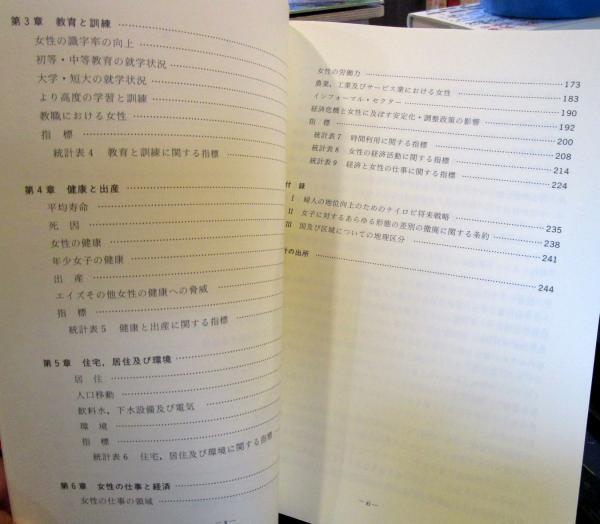 第3章 教育と訓練
女性の識字率の向上
初等・中等教育の就学状況
大学・短大の就学状況
より高度の学習と訓練
教職における女性
指標
統計表4 教育と訓練に関する指標
第4章 健康と出産
平均寿命
死因
女性の健康
年少女子の健康
出産
エイズその他女性の健康への脅威
指標
統計表5 健康と出産に関する指標
第5章 住宅，居住及び環境
居住
人口移動
飲料水，下水設備及び電気
環境
指標
統計表6 住宅，居住及び環境に関する指標
第6章 女性の仕事と経済
女性の仕事の領域
女性の労働力 173
農業，工業及びサービス業における女性 183
インフォーマル・セクター 190
経済危機と女性に及ぼす安定化・調整政策の影響 192
指標 200
統計表7 時間利用に関する指標 208
統計表8 女性の経済活動に関する指標 214
統計表9 経済と女性の仕事に関する指標 224
付録
I 婦人の地位向上のためのナイロビ将来戦略 235
II 女子に対するあらゆる形態の差別の撤廃に関する条約 238
III 国及び区域についての地理区分 241
計の出所 244
— xi —